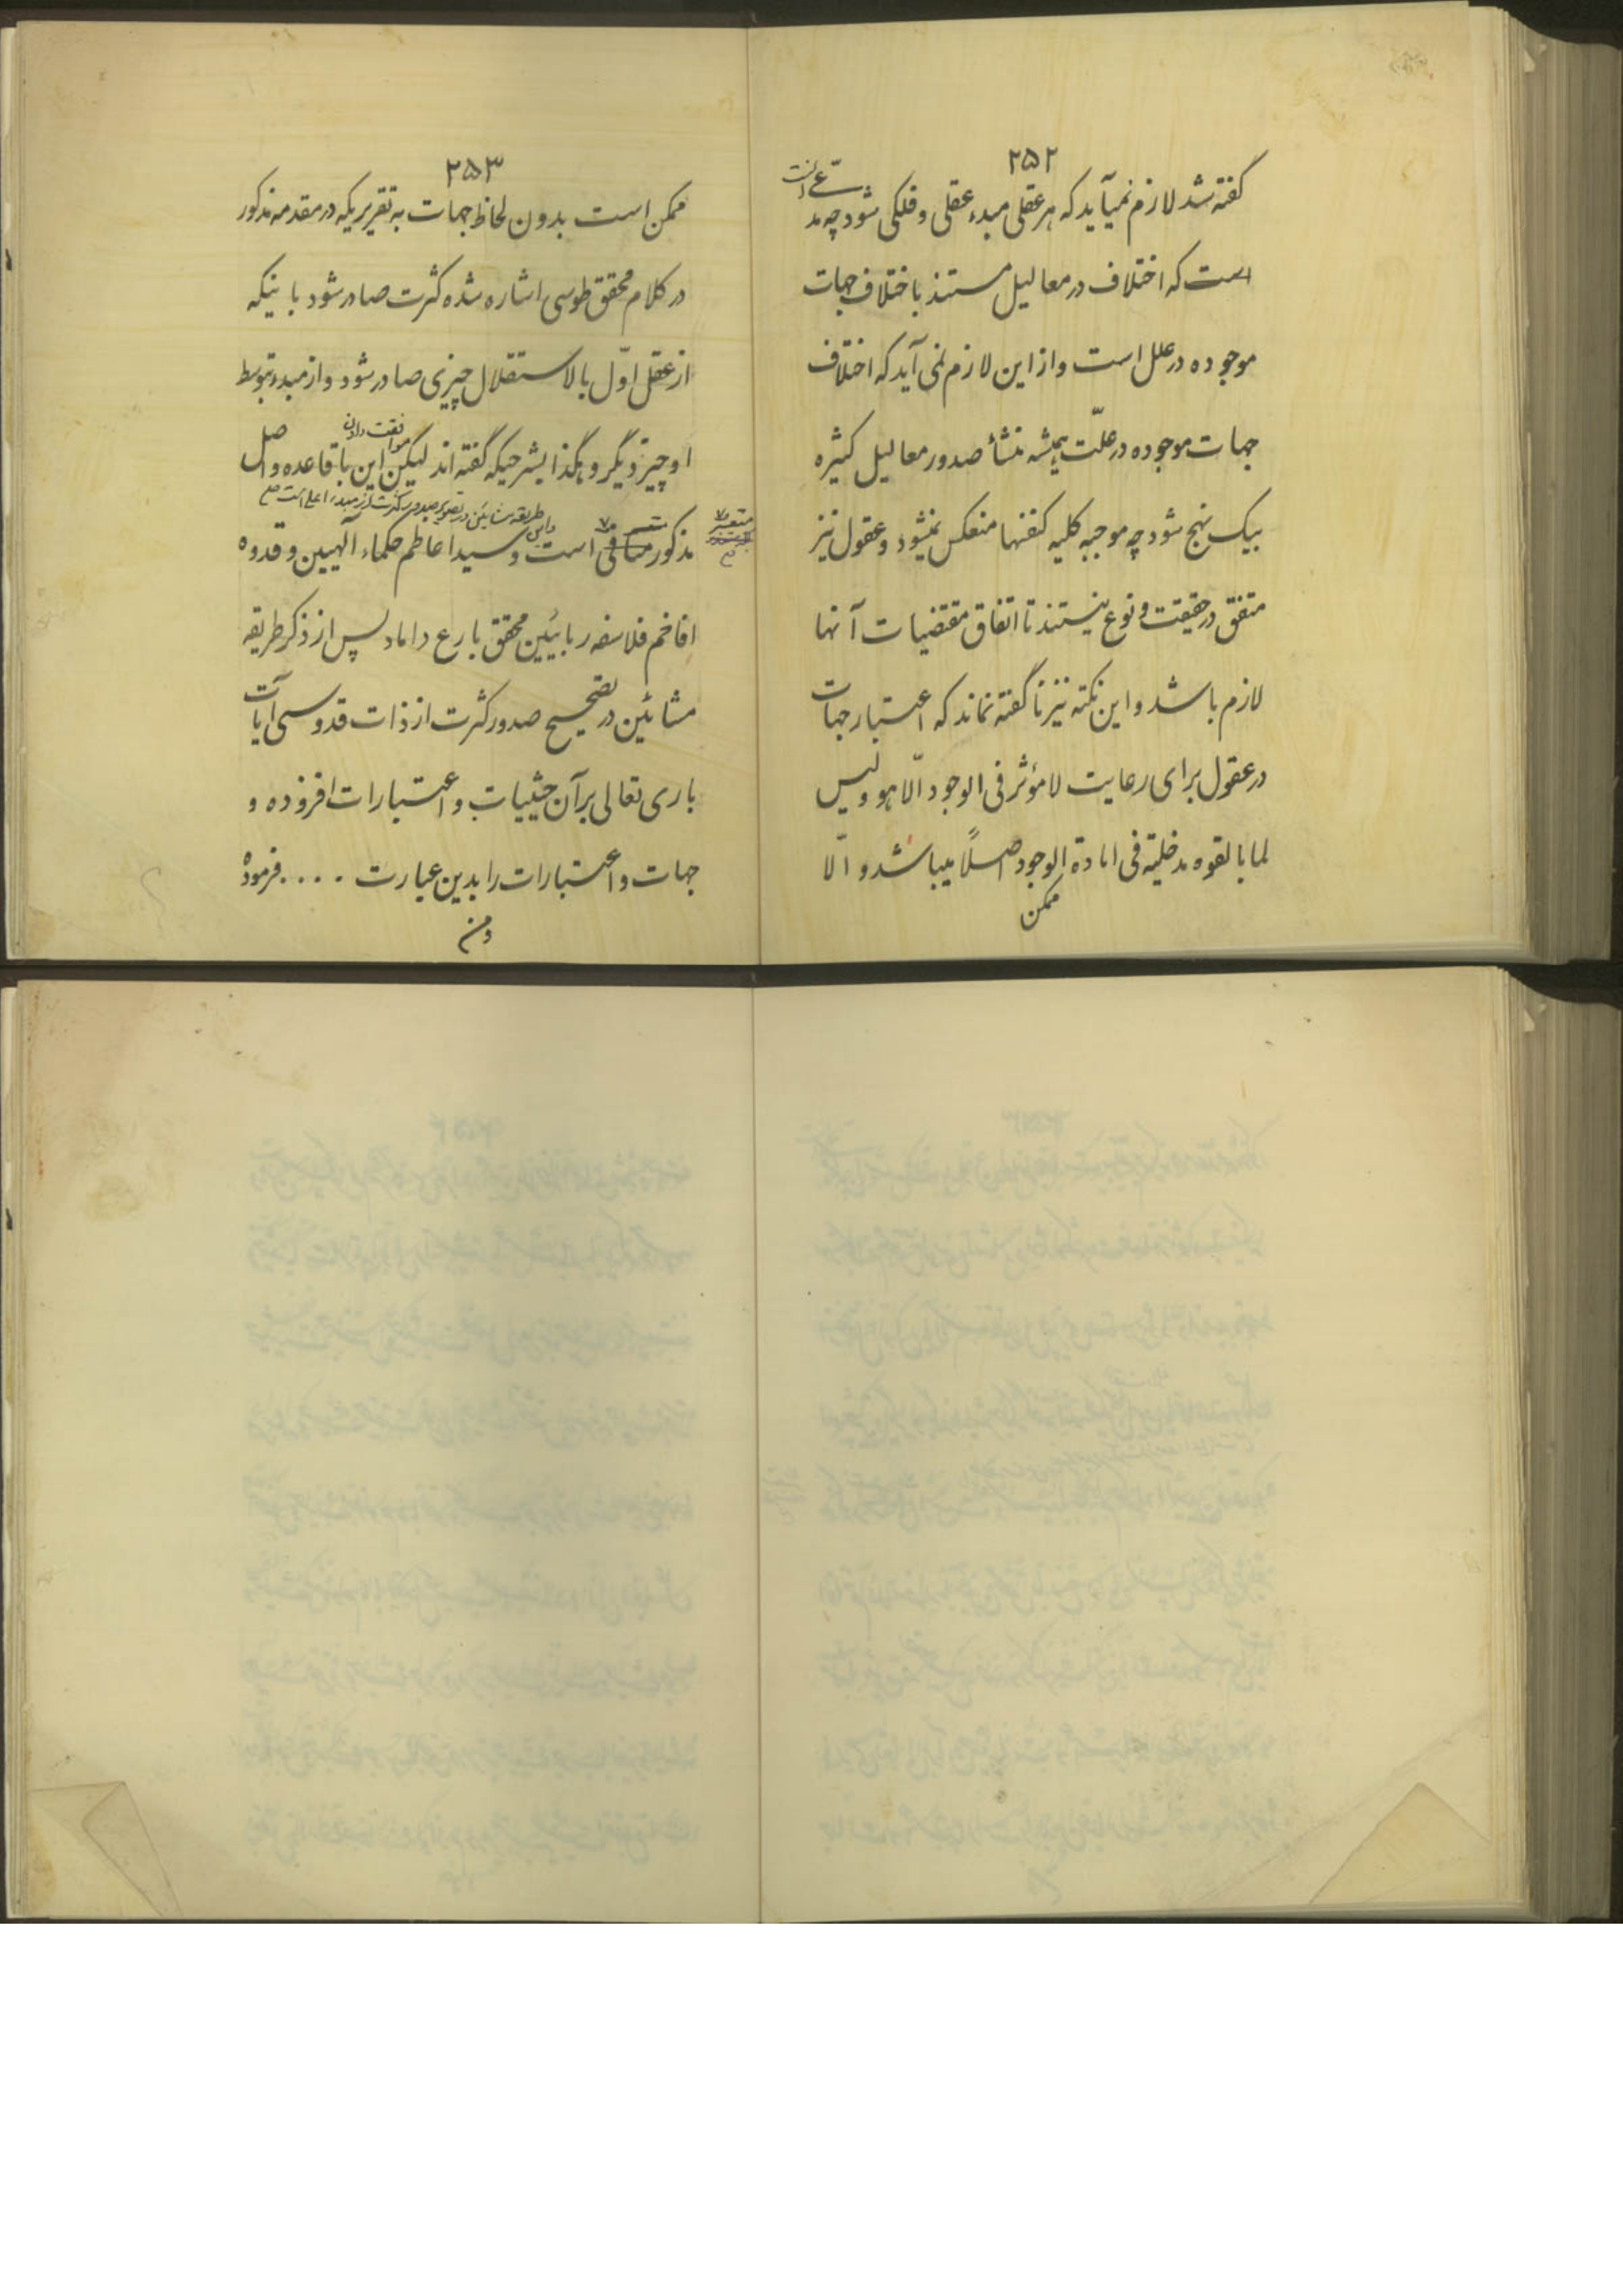 ۲۵۲
گفته شد لازم نمیآید که هر عقلی مبدء عقلی و فلکی شود چه مدّعی آنست
است که اختلاف در معالیل مستند باختلاف جهات
موجوده در علل است و از این لازم نمی آید که اختلاف
جهات موجوده در علّت همیشه منشأ صدور معالیل کثیره
بیک نهج شود چه موجبه کلیه کنفسها منعکس نمیشود و عقول نیز
متفق در حقیقت و نوع نیستند تا اتفاق مقتضیات آنها
لازم باشد و این نکته نیز ناگفته نماند که اعتبار جهات
در عقول برای رعایت لا مؤثر فی الوجود الّا هو و لیس
لما بالقوه مدخلیّة فی افادة الوجود اصلاً میباشد و الّا
ممکن
۲۵۳
ممکن است بدون لحاظ جهات به تقریریکه در مقدمه مذکور
در کلام محقق طوسی اشاره شده کثرت صادر شود باینکه
از عقل اوّل بالاستقلال چیزی صادر شود و از مبدء بتوسط
او چیز دیگر و هکذا بشرحیکه گفته اند لیکن موافقت دادن این با قاعده و اصل
واین طریقه مشائین در تصویر صدور کثرت از مبدء اعلی است صح
مذکور متعسر است و سید اعاظم حکماء آلهیین و قدوه
متعسر
صح
افاخم فلاسفه ربانیین محقق بارع داماد پس از ذکر طریقه
مشائین در تصحیح صدور کثرت از ذات قدوسی آیات
باری تعالی بر آن حیثیات و اعتبارات افزوده و
جهات و اعتبارات را بدین عبارت .... فرموده
و من